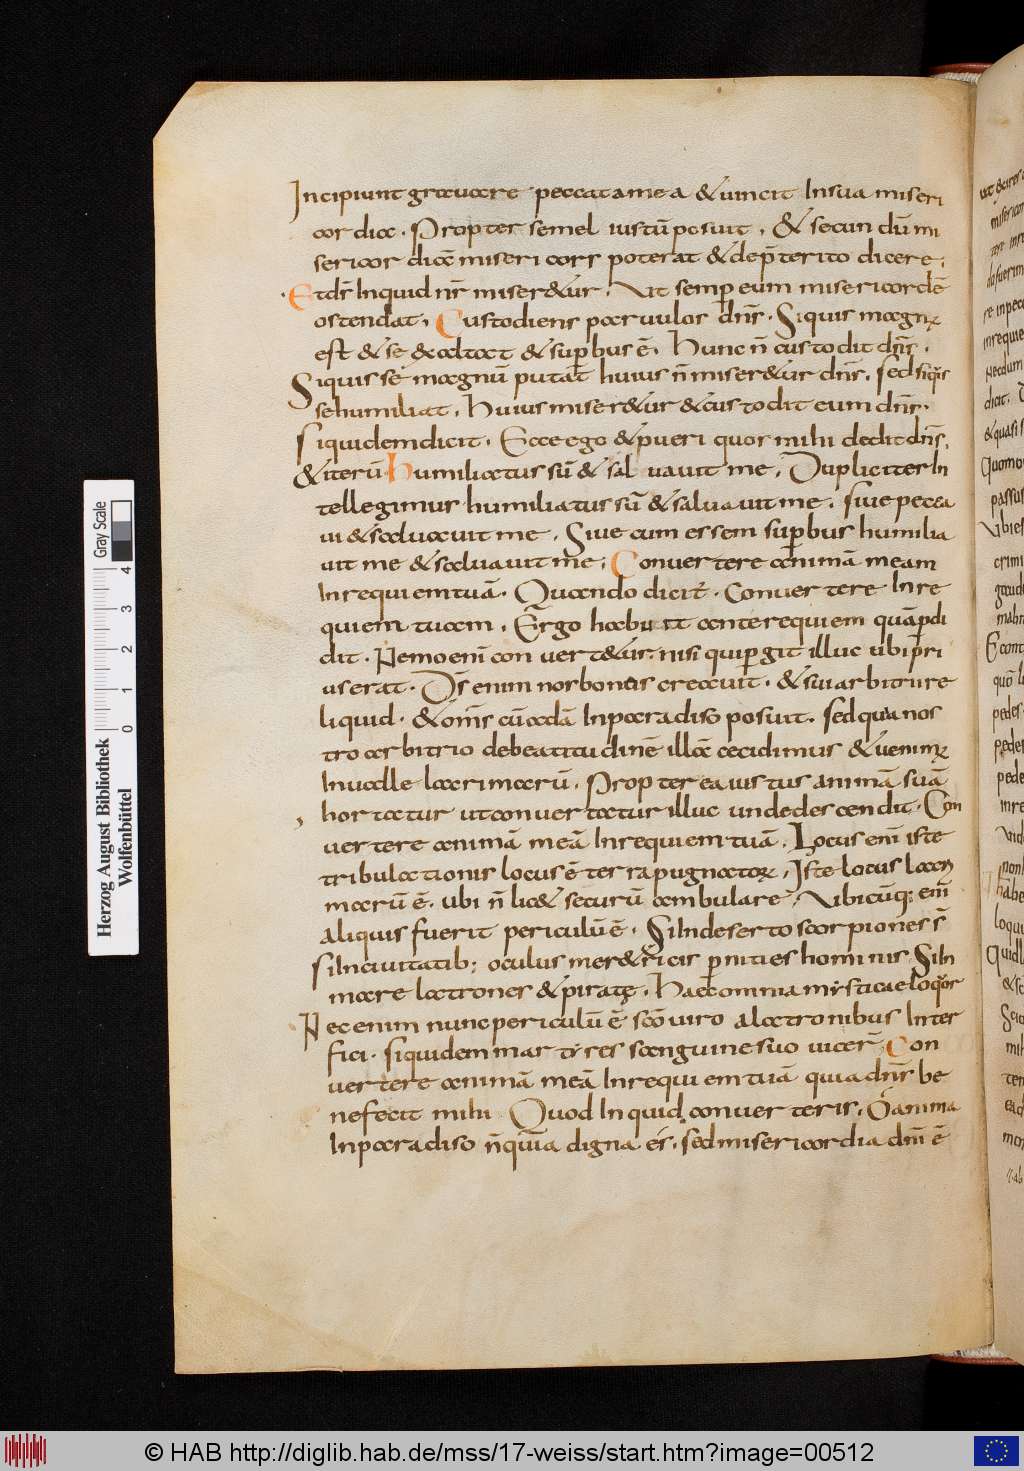 Incipiunt grauare peccata mea & uincit In sua miseri
cordia. Propter semel iustū posuit, & secundū mi
sericordiā misericors poterat & de p̄terito dicere,
Et dn̄s Inquid nr̄ miser&ur. Ut semp eum misericordē
ostendat, Custodiens paruulos dn̄s. Si quis magnus
est & se exaltat & supbus ē. Hunc n̄ custodit dn̄s.
Si quis sē magnū putat huius n̄ miser&ur dn̄s. sed siq̇s
se humiliat, Huius miser&ur & custodit eum dn̄s.
siquidem dicit. Ecce ego & pueri quos mihi dedit dn̄s,
& iterū Humiliatus sū & saluauit me, Dupliciter In
tellegimus humiliatus sū & saluauit me. siue pecca
ui & saluauit me, Siue cum essem supbus humilia
uit me & saluauit me, Conuertere animā meam
In requiem tuā. Quando dicit̄. Conuertere In re
quiem tuam, Ergo habuit ante requiem quā pdi
dit. Nemo enī conuert&ur. nisi qui pergit illuc ubi pri
us erat. Ds̄ enim nos bonos creauit. & sui arbitrii re
liquid. & om̄s cū adā In paradiso posuit. sed quia nos
tro arbitrio de beatitudinē illā cecidimus & uenimus
In ualle lacrimarū. Propterea iustus animā suā
hortatur ut conuertatur illuc unde descendit. Con
uertere animā meā In requiem tuā. Locus enī iste
tribulationis locus ē terra pugnatorum, Iste locus lacri
marū ē. ubi n̄ lic& securū ambulare, Ubicūq; enī
aliquis fuerit periculū ē. Si In deserto scorpiones s̄
si In ciuitatib; oculus mer&ricis pernities hominis Si In
mare latrones & piratę. Haec omnia mysticae loq̇or
Nec enim nunc periculū ē scō uiro a latronibus Inter
fici. siquidem martyres sanguine suo uicer̄ Con
uertere animā meā In requiem tuā quia dn̄s be
nefecit mihi Quod Inquid conuerteris, O anima
In paradiso n̄ quia digna es, sed misericordia dn̄i ē
Herzog August Bibliothek
Wolfenbüttel
0 1 2 3 4
Gray Scale
© HAB http://diglib.hab.de/mss/17-weiss/start.htm?image=00512